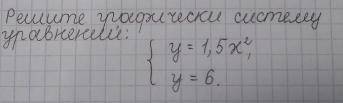 Решите графически систему
уравнений:
y = 1,5x²,
y = 6.